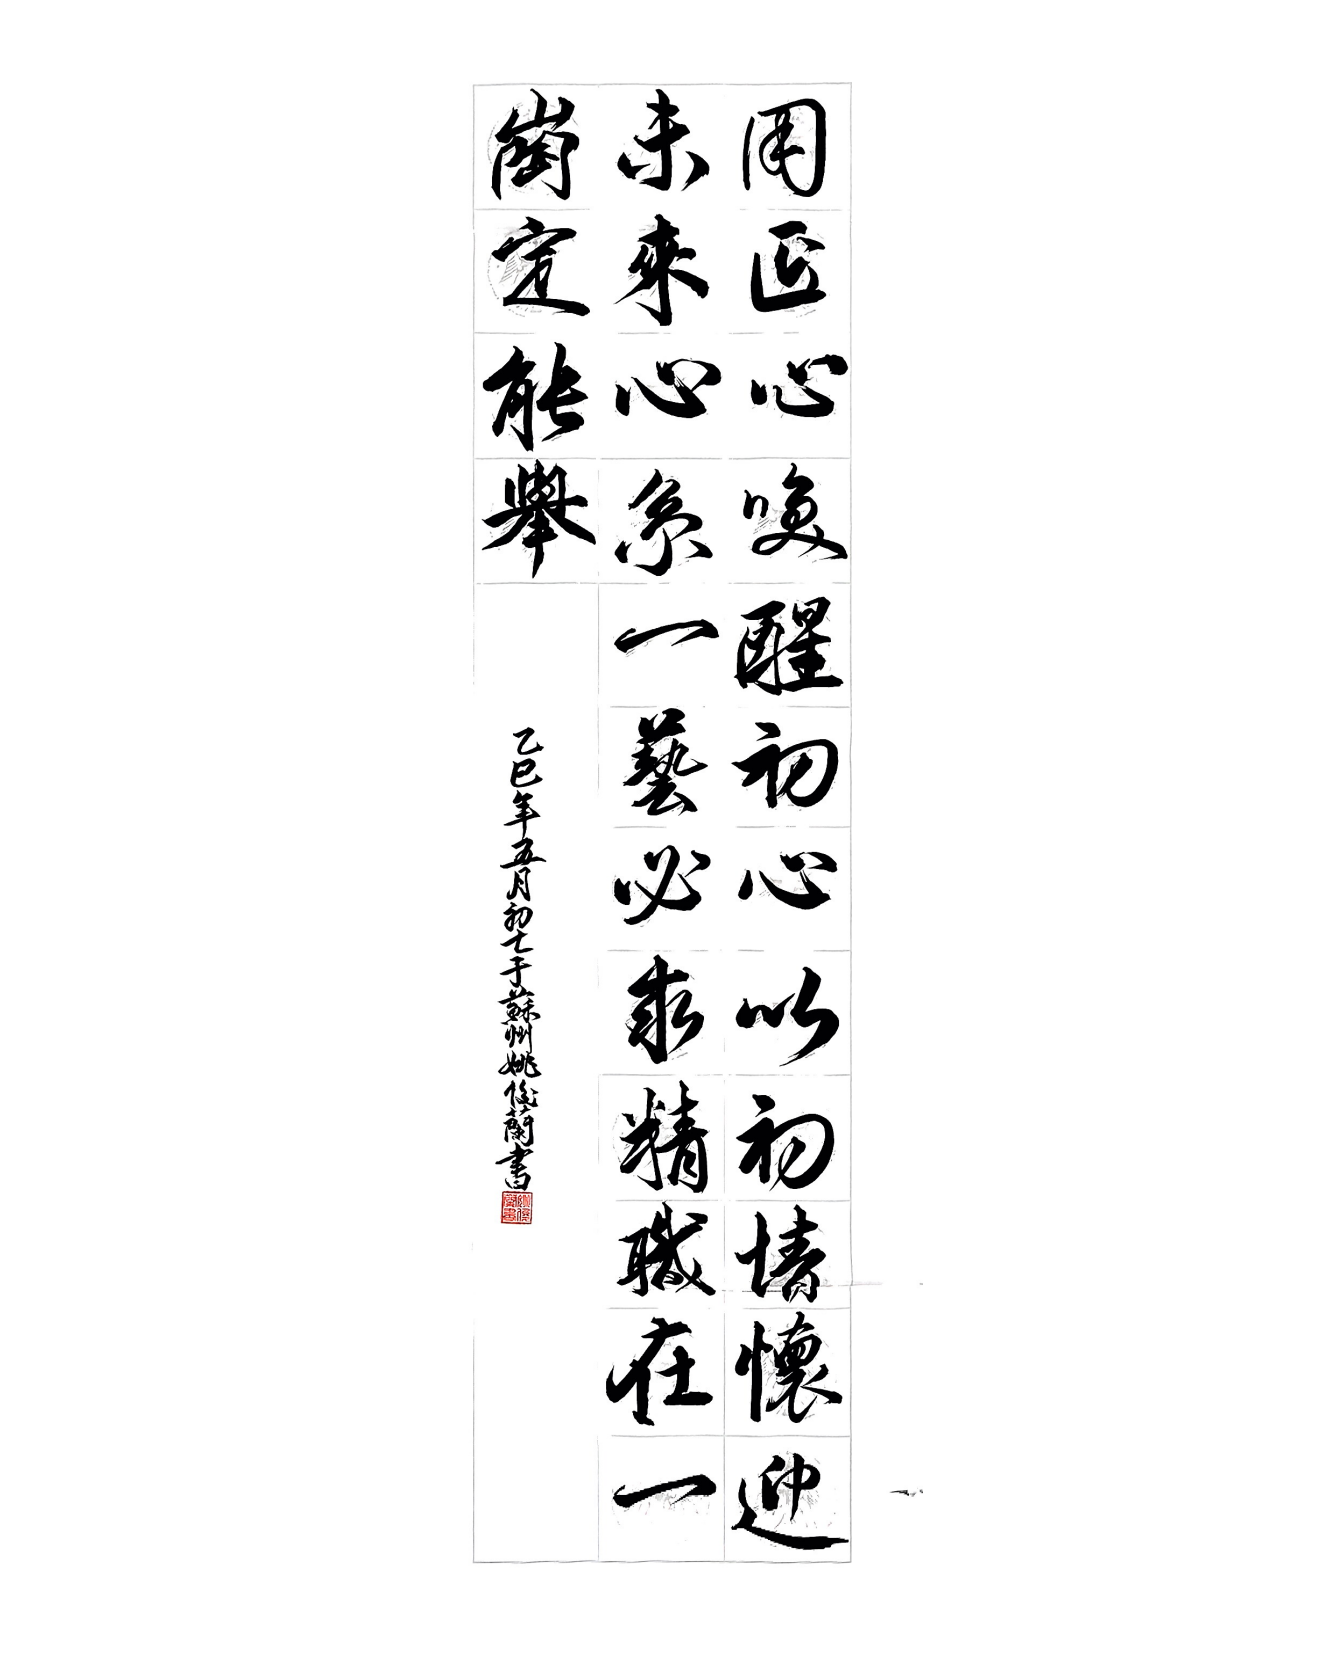 用匠心喚醒初心以初情懷迎
未來心系一藝必求精職在一
崗定能舉
乙巳年五月初七于蘇州姚俊蘭書